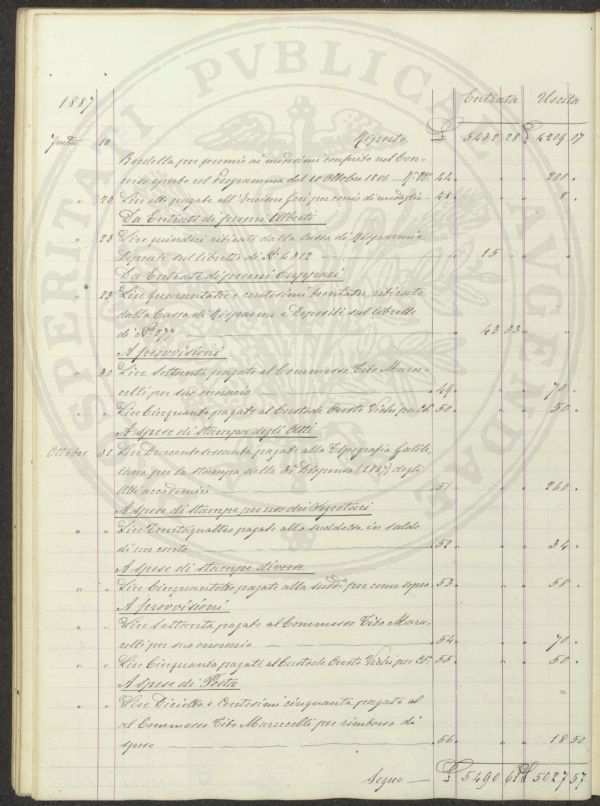 PROSPERITATI PVBLICAE AVGENDAE
1887
Entrata Uscita
10 Riporto £ 5432 28 £ 4209 07
per premio ai medesimi conferito nel Con-
col Programma del 10 Ottobre 1886 44 " 208 "
" 20 Lire otto pagate all' per conio di medaglie 48 " 8 "
Da Entrate di premi Alberti
" 23 Lire quindici ritirate dalla Cassa di Risparmi e
Depositi sul libretto di N. 4812 " 15 "
Da Entrate di premi
" 23 Lire quarantatre e centesimi trentatre, ritirate
dalla Cassa di Risparmi e Depositi sul libretto
di N.° 977 " 43 33 "
A provvisioni
" 30 Lire Settanta pagate al Commesso Tito Maruc-
celli per suo onorario 49 " 70 "
" " Lire Cinquanta pagate al Custode Oreste per Cl. 50 " 50 "
A spese di stampa degli Atti
Ottobre 31 Lire Duecentosessanta pagate alla Tipografia Galile-
iana per la stampa della 3ª Dispensa (1887) degli
Atti accademici 51 " 260 "
A spese di stampe per uso dei Segretari
" " Lire Trentaquattro pagate alla suddetta in saldo
di un conto 52 " 34 "
A spese di stampe diverse
" " Lire Cinquantotto pagate alla sudd.ª per come sopra 53 " 58 "
A provvisioni
" " Lire Settanta pagate al Commesso Tito Maruc-
celli per suo onorario 54 " 70 "
" " Lire Cinquanta pagate al Custode Oreste per Cl. 55 " 50 "
A spese di Posta
" " Lire Diciotto e Centesimi cinquanta pagate al
al Commesso Tito Maruccelli per rimborso di
spese 56 " 18 50
Segue £ 5490 61 £ 5027 57